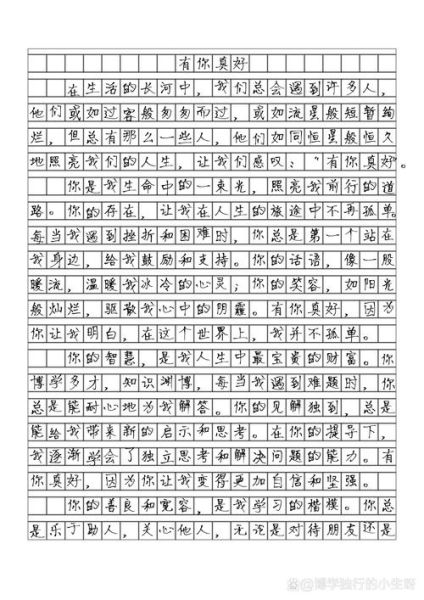 有你真好
在生活的长河中，我们总会遇到许多人，
他们或如过客般匆匆而过，或如流星般短暂绚
烂，但总有那么一些人，他们如同恒星般恒久
地照亮我们的人生，让我们感叹：“有你真好”。
你是我生命中的一束光，照亮我前行的道
路。你的存在，让我在人生的旅途中不再孤单。
每当我遇到挫折和困难时，你总是第一个站在
我身边，给我鼓励和支持。你的话语，像一股
暖流，温暖我冰冷的心灵；你的笑容，如阳光
般灿烂，驱散我心中的阴霾。有你真好，因为
你让我明白，在这个世界上，我并不孤单。
你的智慧，是我人生中最宝贵的财富。你
博学多才，知识渊博，每当我遇到难题时，你
总是能耐心地为我解答。你的见解独到，总是
能给我带来新的启示和思考。在你的提导下，
我逐渐学会了独立思考和解决问题的能力。有
你真好，因为你让我变得更加自信和坚强。
你的善良和宽容，是我学习的楷模。你总
是乐于助人，关心他人，无论是对待朋友还是
@博学独行的小生呀